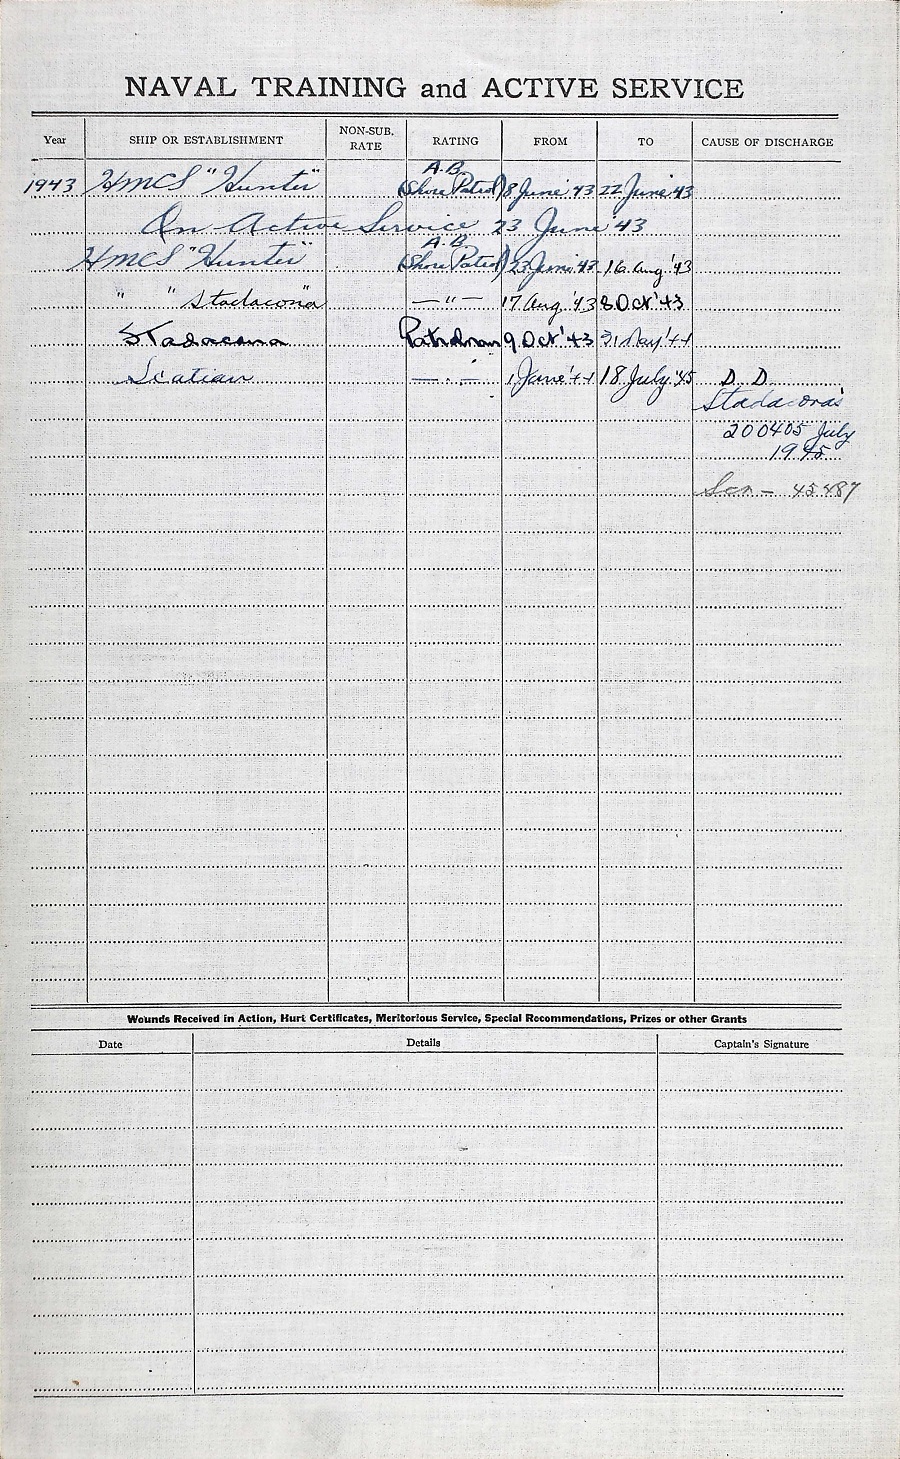 NAVAL TRAINING and ACTIVE SERVICE
Year SHIP OR ESTABLISHMENT NON-SUB. RATE RATING FROM TO CAUSE OF DISCHARGE
1943 HMCS "Hunter" A.B. (Shore Patrol) 8 June '43 22 June '43
On Active Service 23 June '43
HMCS "Hunter" A.B. (Shore Patrol) 23 June '43 16 Aug '43
" " Stadacona" —"— 17 Aug '43 8 Oct '43
Stadacona Patrolman 9 Oct '43 31 May '44
Scotian —"— 1 June '44 18 July '45 D.D.
Stadacona's
200405 July
1945
45487
Wounds Received in Action, Hurt Certificates, Meritorious Service, Special Recommendations, Prizes or other Grants
Date Details Captain's Signature